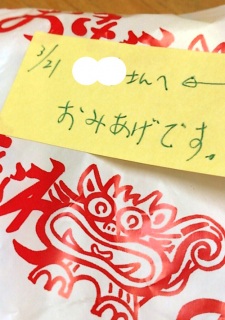 3/21 さんへ
おみあげです。